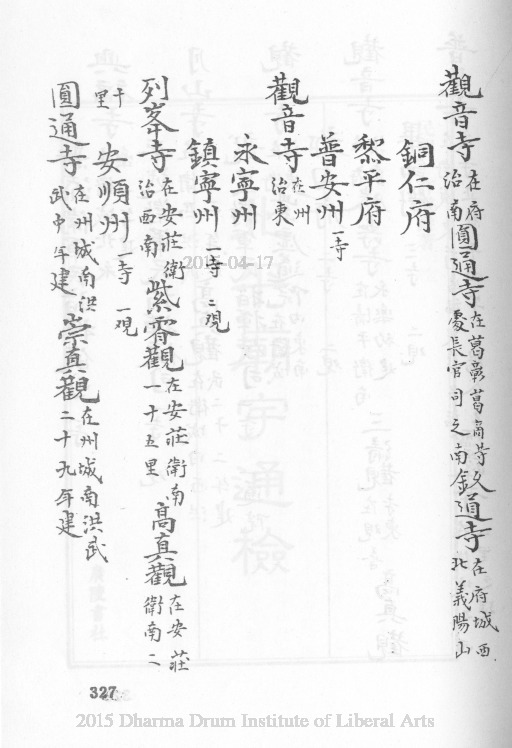 觀音寺在府治南圓通寺在葛彰葛商等處長官司之南釛道寺在府城西北義陽山
銅仁府
黎平府
普安州一寺
觀音寺在州治東
永寧州
鎮寧州一寺二觀
列峯寺在安莊衛治西南紫霄觀在安莊衛南一十五里高真觀在安莊衛南二十里
安順州一寺一觀
圓通寺在州城南洪武中年建崇真觀在州城南洪武二十九年建
2015-04-17
327
2015 Dharma Drum Institute of Liberal Arts